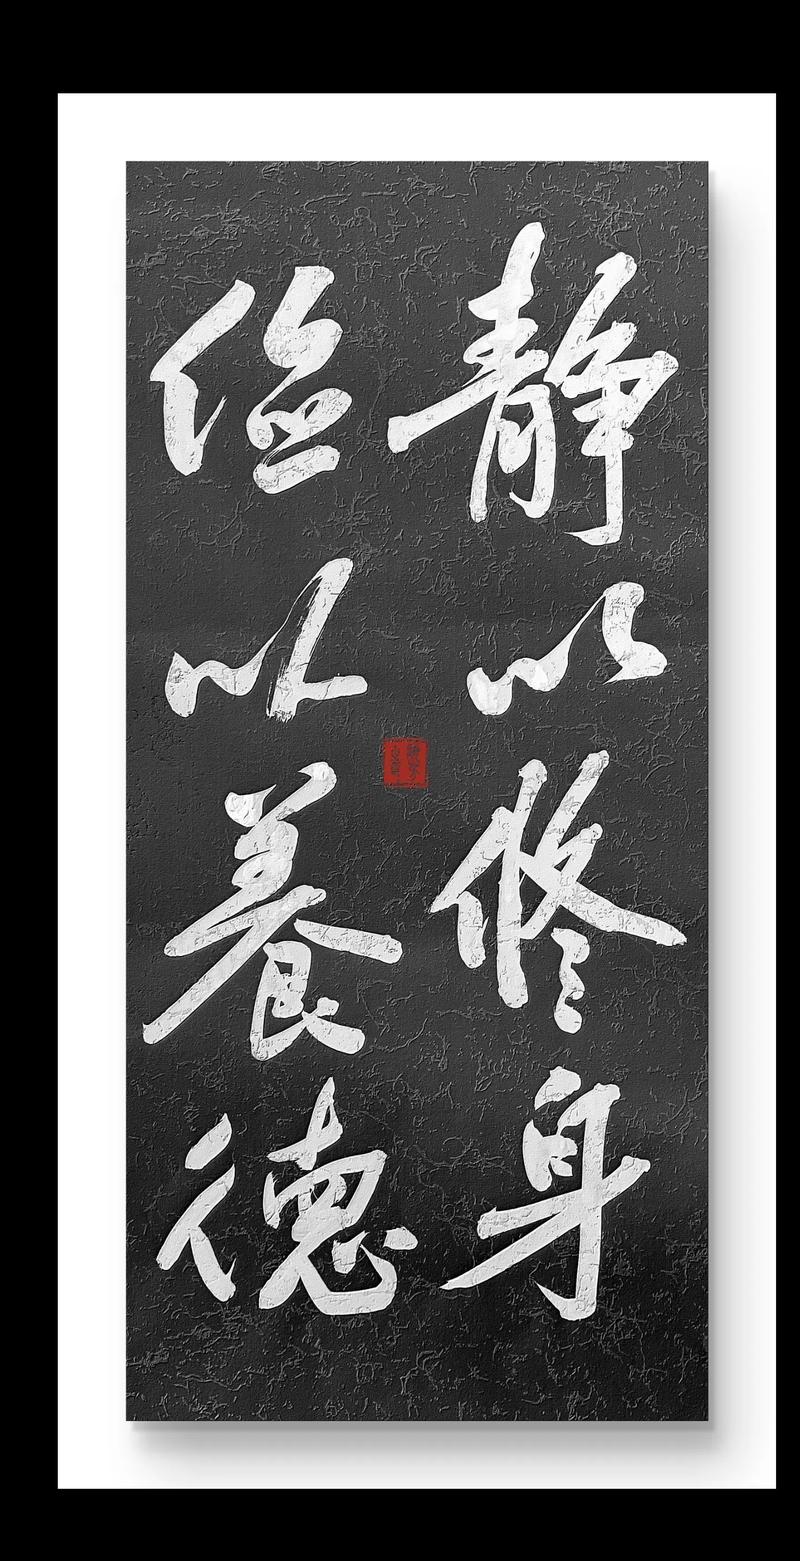 静以修身
俭以養德